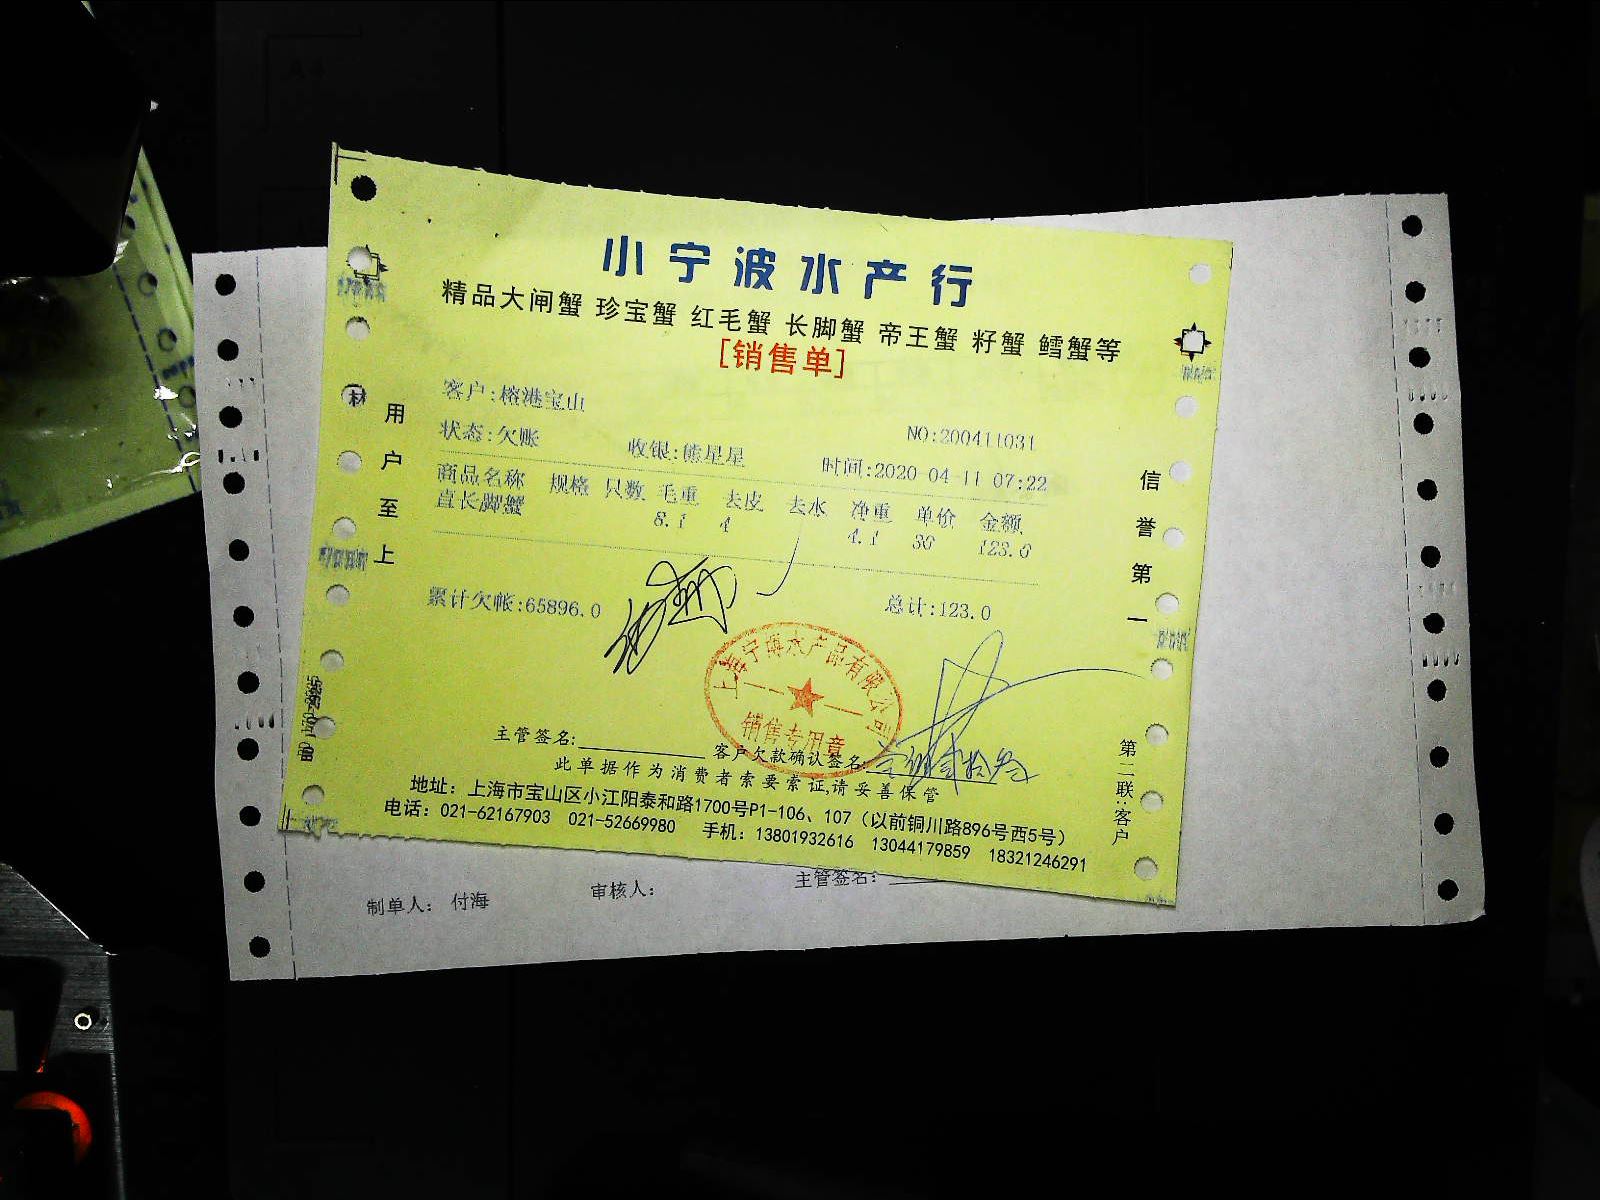 小宁波水产行
精品大闸蟹 珍宝蟹 红毛蟹 长脚蟹 帝王蟹 籽蟹 鳕蟹等
[销售单]
客户:榕港宝山
NO:200411031
状态:欠账 收银:熊星星 时间:2020-04-11 07:22
商品名称 规格 只数 毛重 去皮 去水 净重 单价 金额
直长脚蟹 8.1 4 4.1 30 123.0
累计欠帐:65896.0 总计:123.0
用户至上
信誉第一
上海宁博水产品有限公司
销售专用章
主管签名: 客户欠款确认签名:
此单据作为消费者索要索证,请妥善保管
地址：上海市宝山区小江阳泰和路1700号P1-106、107（以前铜川路896号西5号）
电话：021-62167903 021-52669980 手机：13801932616 13044179859 18321246291
第二联:客户
制单人： 付海 审核人： 主管签名：